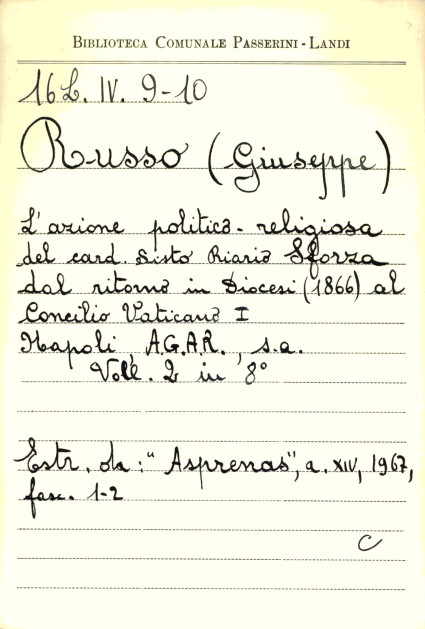 BIBLIOTECA COMUNALE PASSERINI - LANDI
16 L. IV. 9-10
Russo (Giuseppe)
L'azione politico-religiosa
del card. Sisto Riario Sforza
dal ritorno in Diocesi (1866) al
Concilio Vaticano I
Napoli, A.G.A.R., s.a.
Voll. 2 in 8°
Estr. da: "Asprenas", a. XIV, 1967,
fasc. 1-2
C